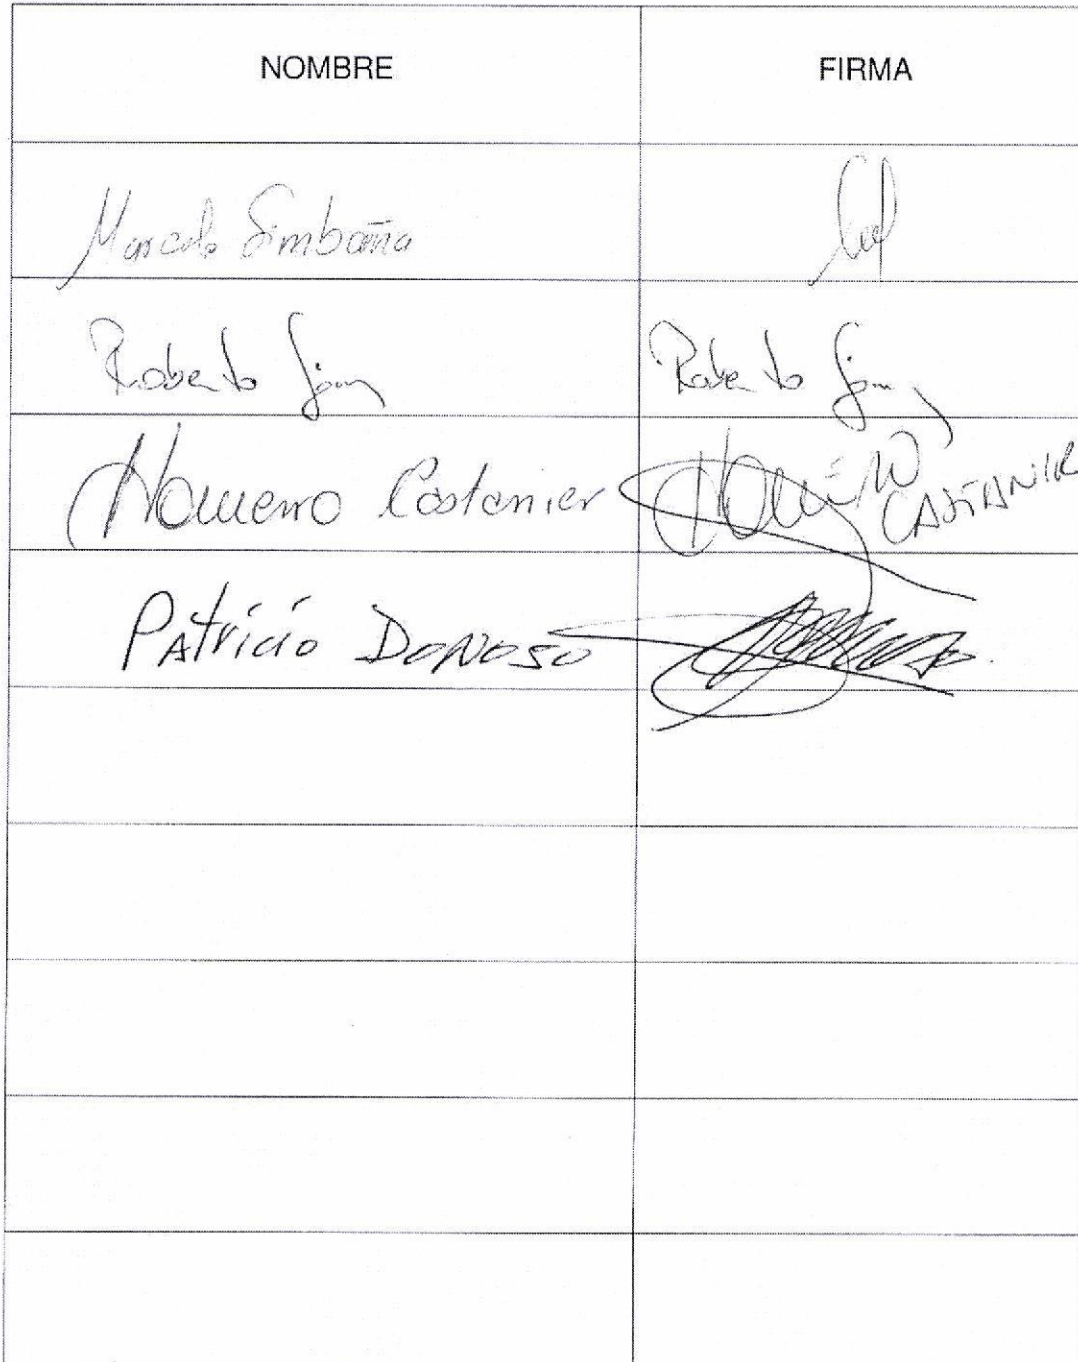 NOMBRE FIRMA
Marcelo Simbaña
Roberto Roberto
Homero Castanier Homero CASTANIER
Patricio Donoso